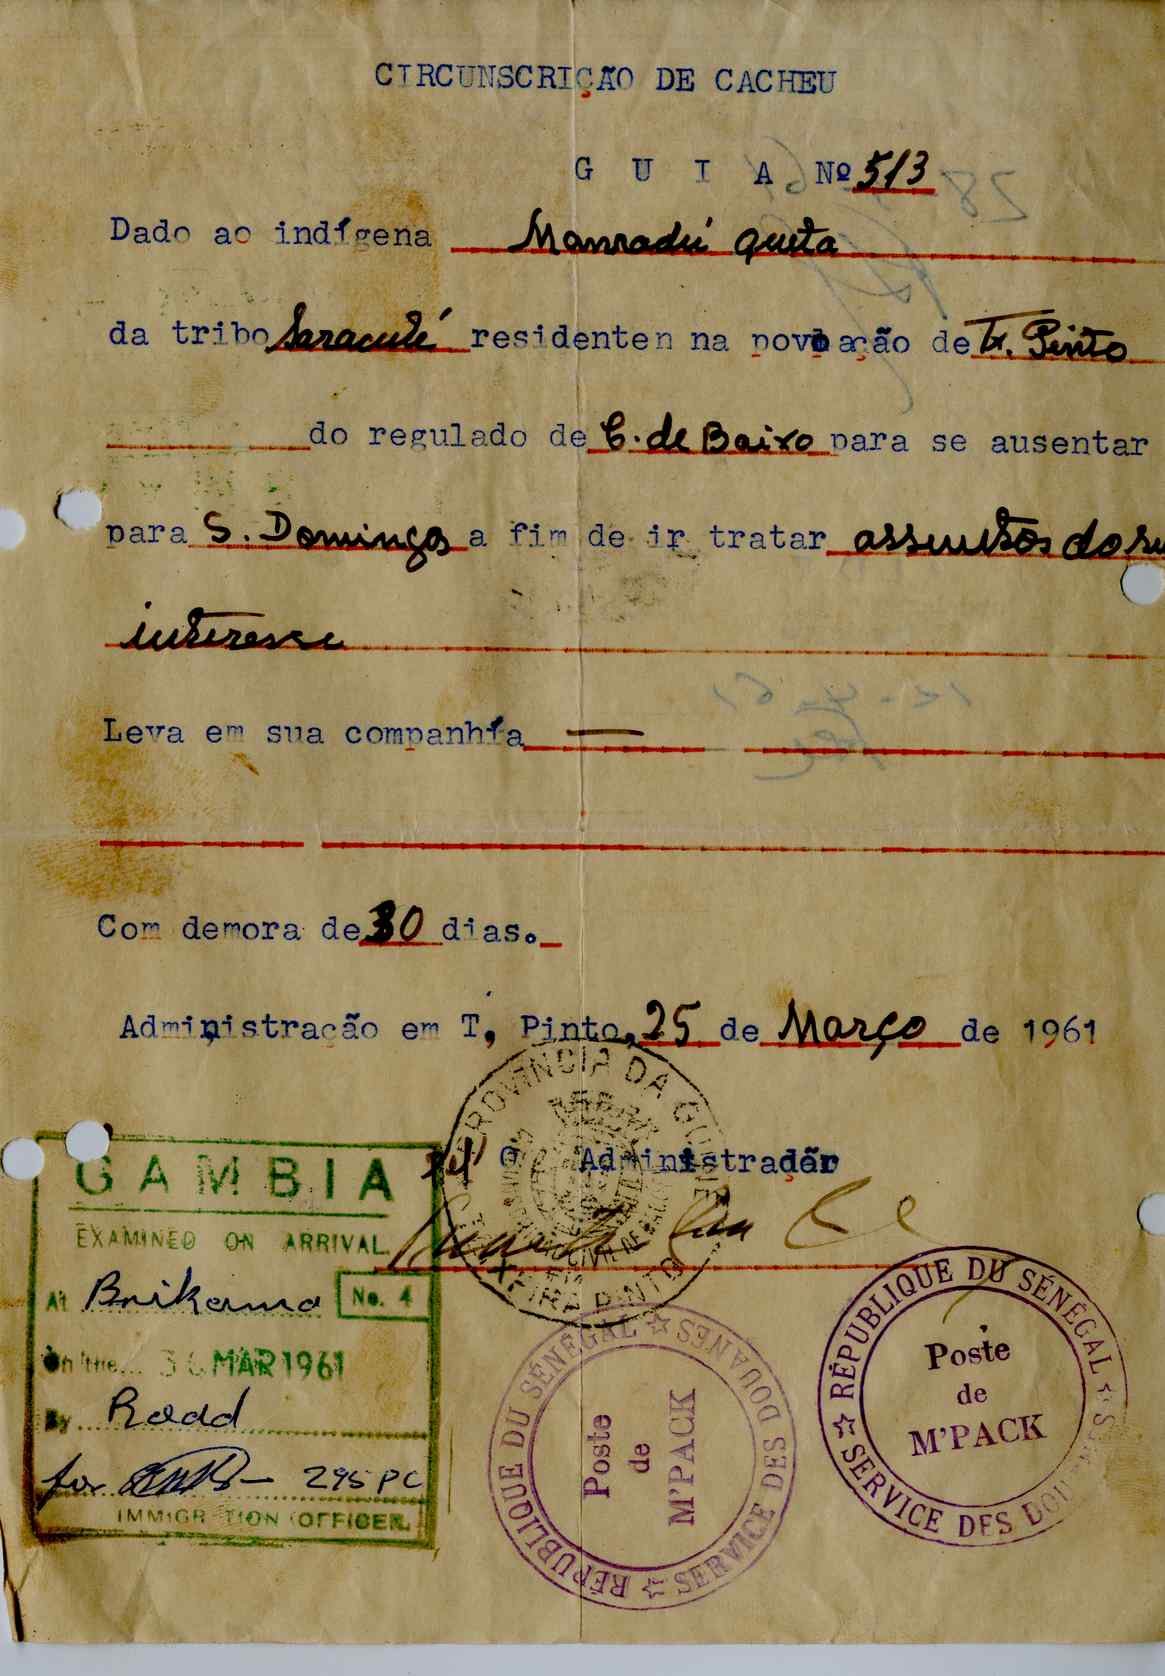 CIRCUNSCRIÇÃO DE CACHEU
G U I A Nº 513
Dado ao indígena Mamadú Queta
da tribo Saraculé residenten na povoação de Tx. Pinto
do regulado de C. de Baixo para se ausentar
para S. Domingos a fim de ir tratar assuntos do su
interesse
Leva em sua companhía —
Com demora de 30 dias.
Administração em T, Pinto, 25 de Março de 1961
O Administrador
PROVINCIA DA GUINÉ
TEIXEIRA PINTO
GAMBIA
EXAMINED ON ARRIVAL
At Brikama No. 4
On the... 30 MAR 1961
By
for 295 PC
IMMIGRATION OFFICER.
RÉPUBLIQUE DU SÉNÉGAL ☆ SERVICE DES DOUANES ☆
Poste
de
M'PACK
RÉPUBLIQUE DU SÉNÉGAL ☆ SERVICE DES DOUANES ☆
Poste
de
M'PACK